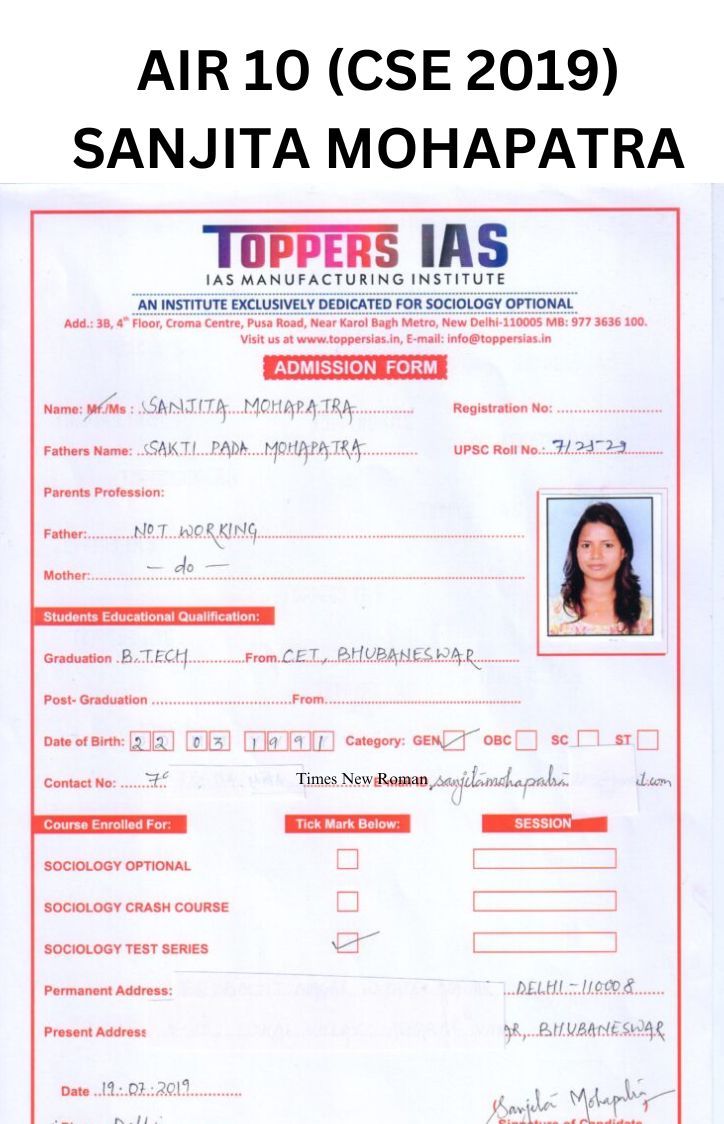 AIR 10 (CSE 2019)
SANJITA MOHAPATRA
TOPPERS IAS
IAS MANUFACTURING INSTITUTE
AN INSTITUTE EXCLUSIVELY DEDICATED FOR SOCIOLOGY OPTIONAL
Add.: 3B, 4th Floor, Croma Centre, Pusa Road, Near Karol Bagh Metro, New Delhi-110005 MB: 977 3636 100.
Visit us at www.toppersias.in, E-mail: info@toppersias.in
ADMISSION FORM
Name: Mr./Ms : SANJITA MOHAPATRA Registration No:
Fathers Name: SAKTI PADA MOHAPATRA UPSC Roll No.:
Parents Profession:
Father: NOT WORKING
Mother: — do —
Students Educational Qualification:
Graduation B.TECH From CET, BHUBANESWAR
Post- Graduation From
Date of Birth: 22 03 1991 Category: GEN OBC SC ST
Contact No: Times New Roman sanjitamohapatra
Course Enrolled For: Tick Mark Below: SESSION
SOCIOLOGY OPTIONAL
SOCIOLOGY CRASH COURSE
SOCIOLOGY TEST SERIES
Permanent Address: DELHI-110008
Present Address BHUBANESWAR
Date 19.07.2019
Sanjita Mohapatra
Delhi Signature of Candidate